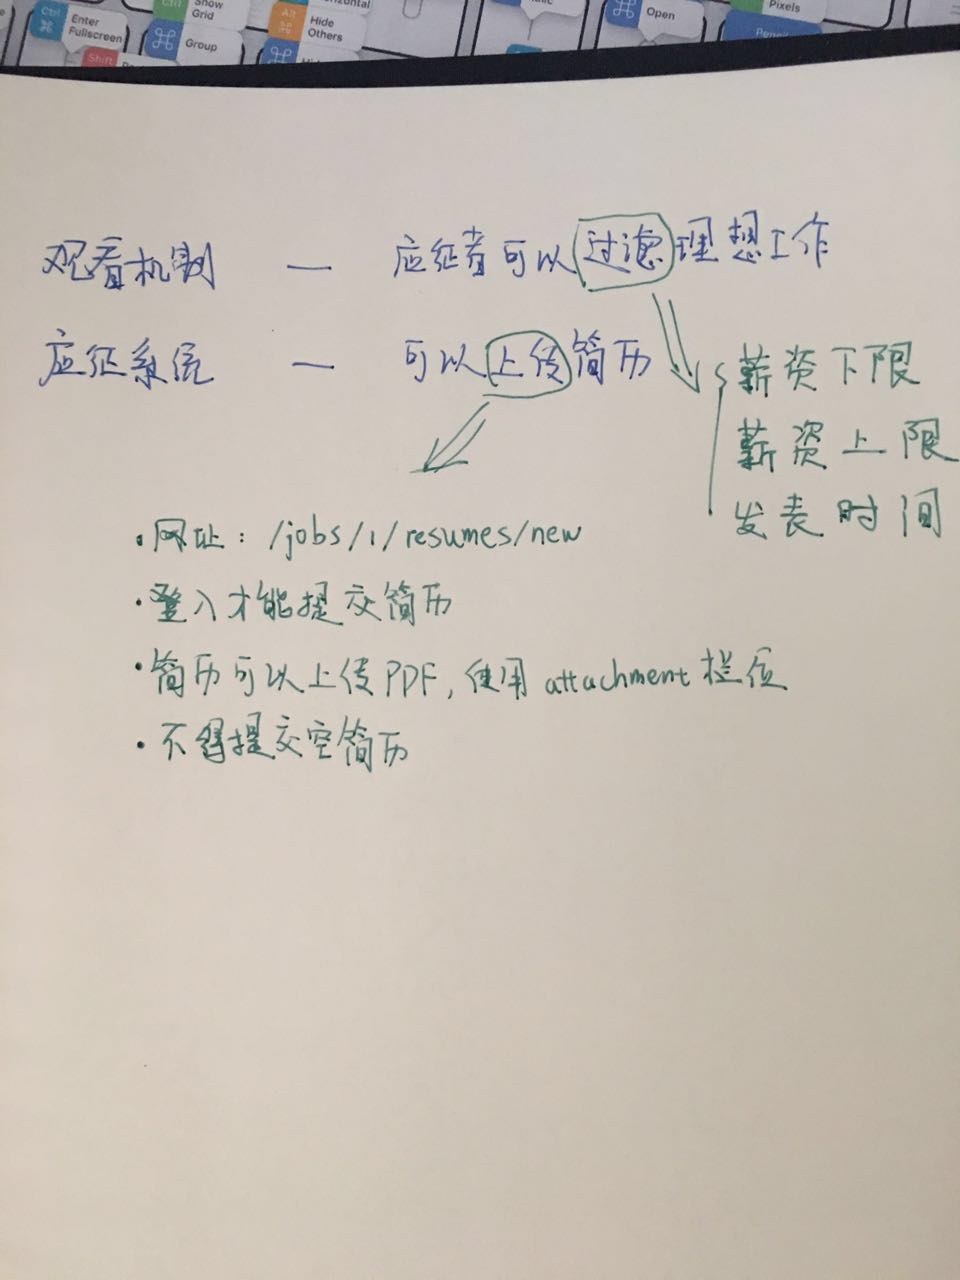 Ctrl
Enter
Fullscreen
Show
Grid
Group
Shift
Alt
Hide
Others
Open
Pixels
观看机制 — 应征者可以过滤理想工作
应征系统 — 可以上传简历
薪资下限
薪资上限
发表时间
·网址：/jobs/1/resumes/new
·登入才能提交简历
·简历可以上传PDF，使用 attachment 栏位
·不得提交空简历